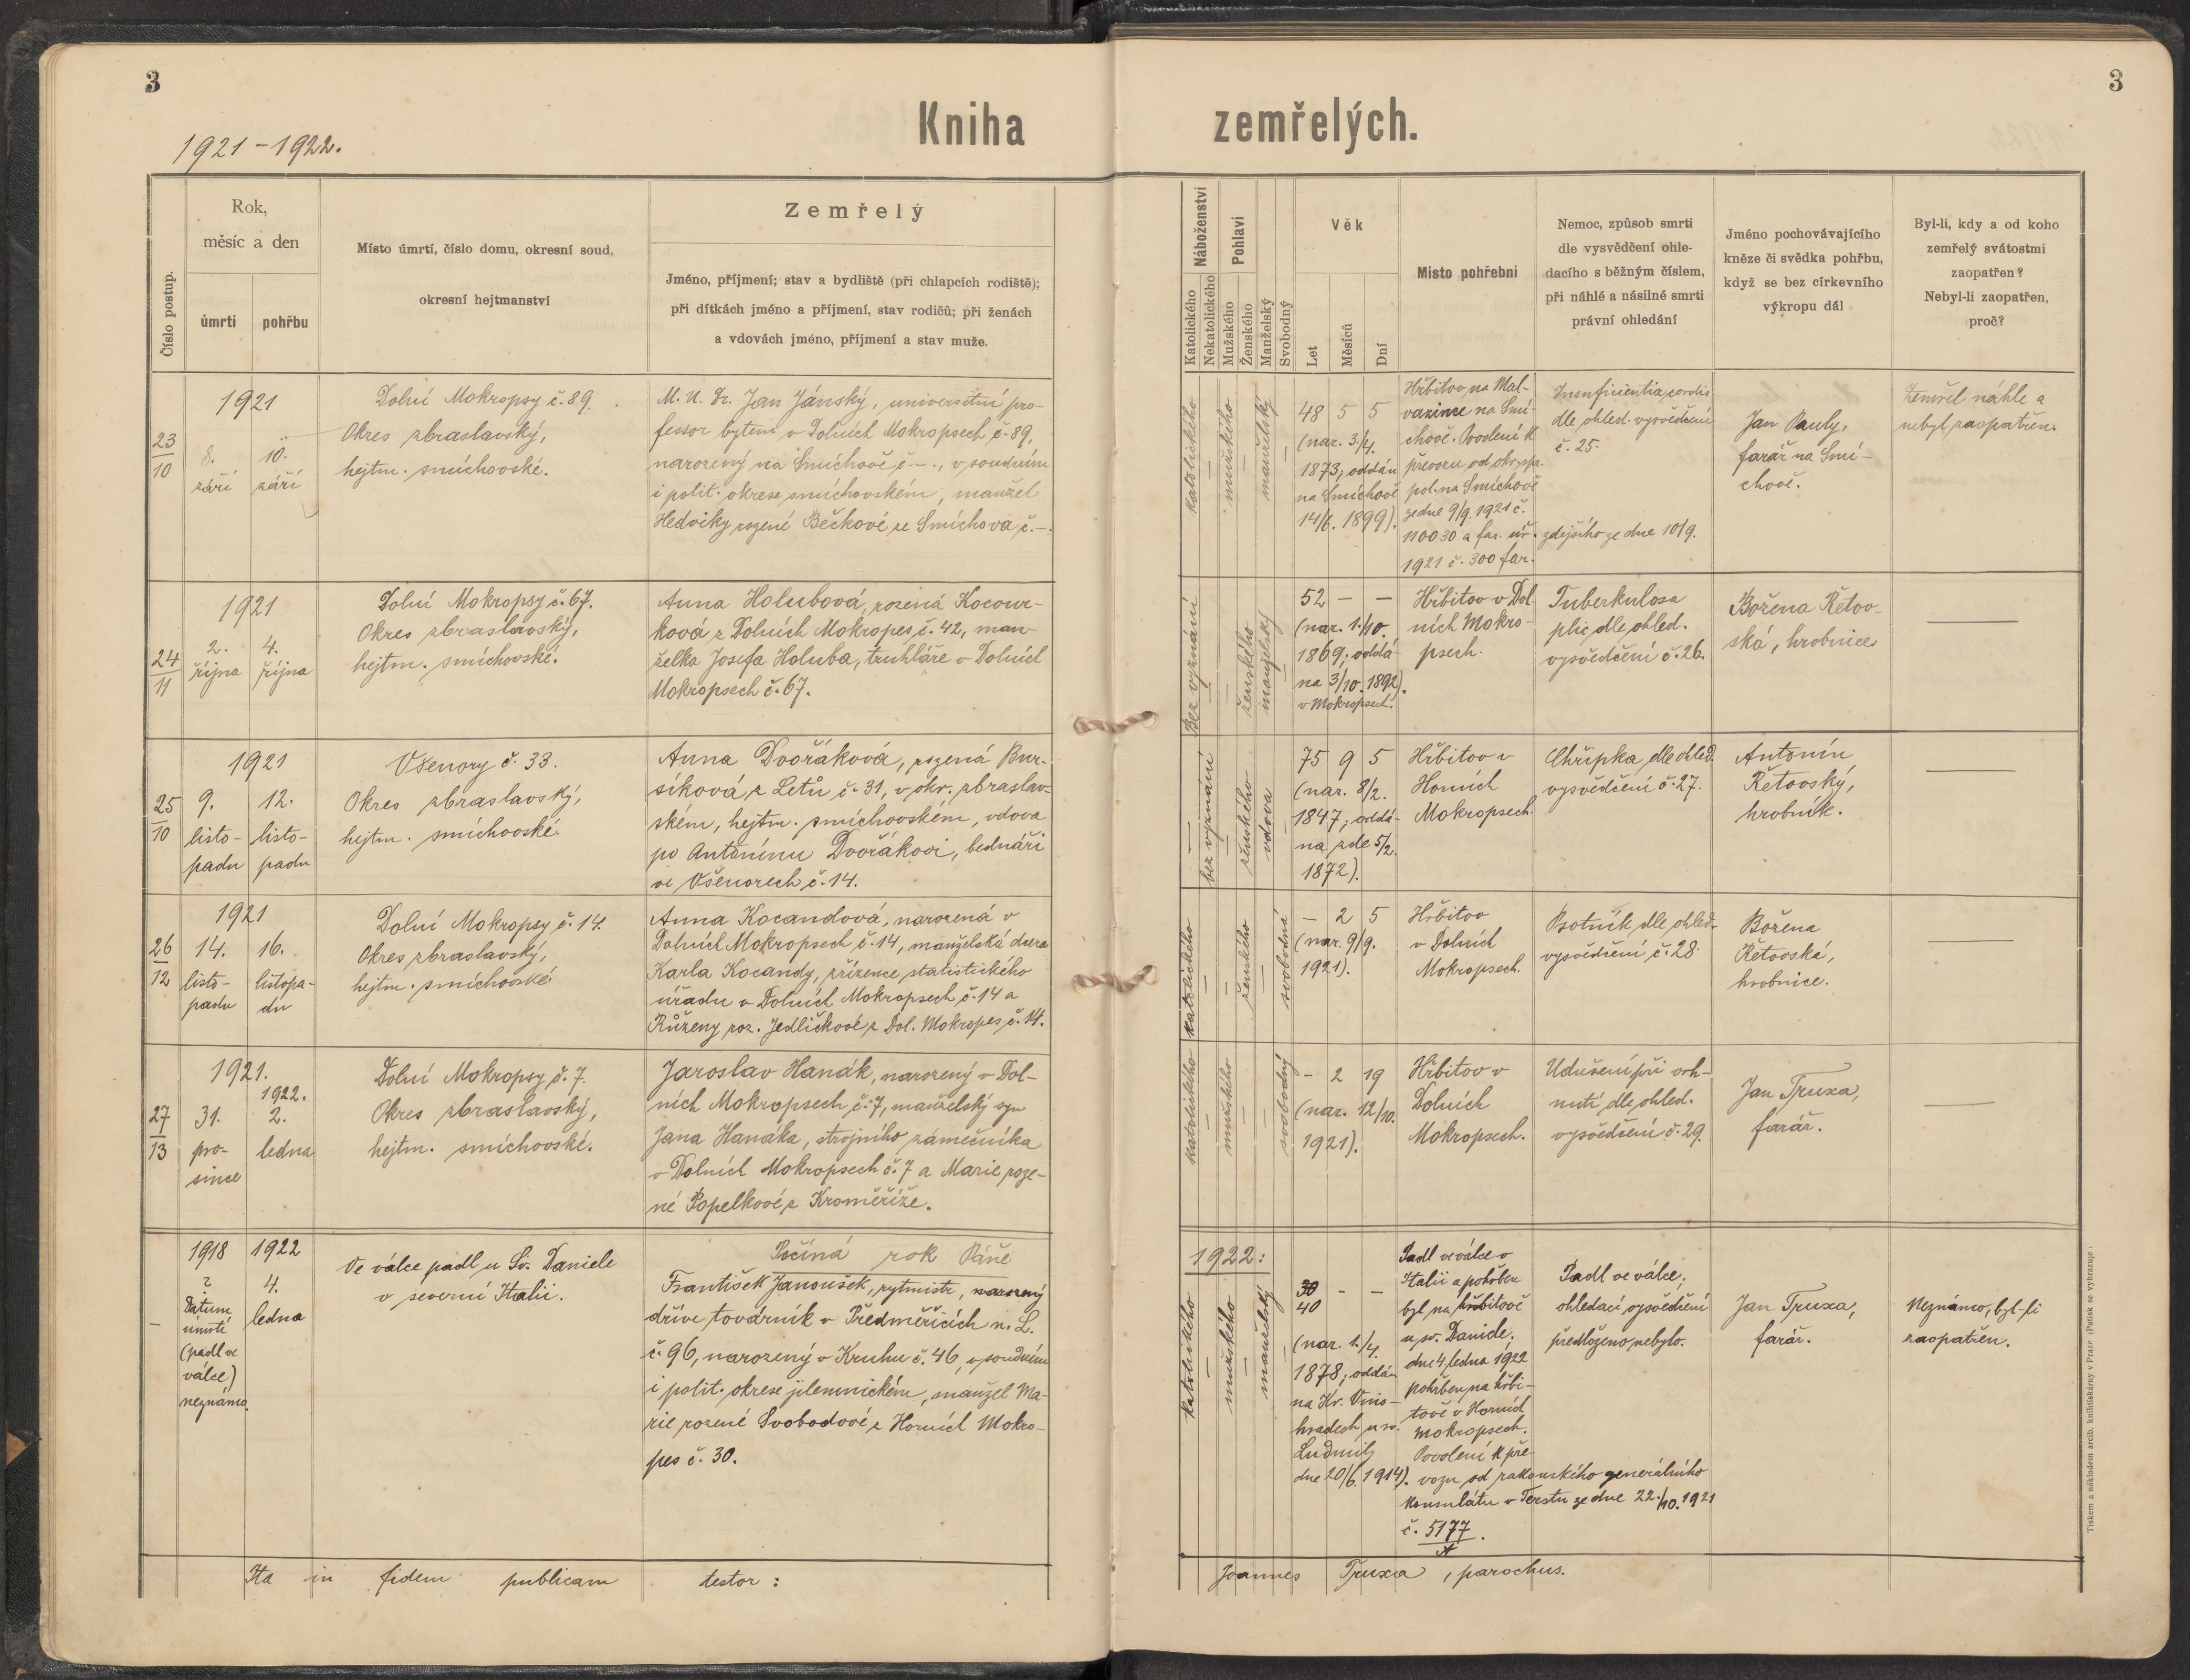 3
3
Kniha zemřelých.
1921-1922.
Číslo postup.
Rok,
měsíc a den
úmrtí
pohřbu
Místo úmrtí, číslo domu, okresní soud,
okresní hejtmanství
Zemřelý
Jméno, příjmení; stav a bydliště (při chlapcích rodiště);
při dítkách jméno a příjmení, stav rodičů; při ženách
a vdovách jméno, příjmení a stav muže.
Náboženství
Katolického
Nekatolického
Pohlaví
Mužského
Ženského
Manželský
Svobodný
Věk
Let
Měsíců
Dní
Místo pohřební
Nemoc, způsob smrti
dle vysvědčení ohle-
dacího s běžným číslem,
při náhlé a násilné smrti
právní ohledání
Jméno pochovávajícího
kněze či svědka pohřbu,
když se bez církevního
výkropu dál
Byl-li, kdy a od koho
zemřelý svátostmi
zaopatřen?
Nebyl-li zaopatřen,
proč?
23
10
1921
8.
září
10.
září
Dolní Mokropsy č. 89.
Okres zbraslavský,
hejtm. smíchovské.
M. U. Dr. Jan Jánský, universitní pro-
fessor bytem v Dolních Mokropsech č. 89,
narozený na Smíchově č. -., v soudním
i polit. okrese smíchovském, manžel
Hedviky rozené Bečkové ze Smíchova č. -.
katolického
mužského
manželský
48 5 5
(nar. 3./4.
1873; oddán
na Smíchově
14/6. 1899).
Hřbitov na Mal-
vazince na Smí-
chově. Povolení k
převozu od okr. spr.
pol. na Smíchově
ze dne 9/9. 1921 č.
110030 a far. úř. zdejšího ze dne 10/9.
1921 č. 300 far.
Insuficientia cordis
dle ohled. vysvědčení
č. 25.
Jan Pauly,
farář na Smí-
chově.
Zemřel náhle a
nebyl zaopatřen.
24
11
1921
2.
října
4.
října
Dolní Mokropsy č. 67.
Okres zbraslavský,
hejtm. smíchovské.
Anna Holubová, rozená Kocour-
ková z Dolních Mokropes č. 42, man-
želka Josefa Holuba, truhláře v Dolních
Mokropsech č. 67.
Bez vyznání
ženského
manželský
52 - -
(nar. 1./10.
1869; oddá-
na 3/10. 1892)
v Mokropsech.
Hřbitov v Dol-
ních Mokro-
psech.
Tuberkulosa
plic dle ohled.
vysvědčení č. 26.
Božena Řetov-
ská, hrobnice
25
10
1921
9.
listo-
padu
12.
listo-
padu
Všenory č. 33.
Okres zbraslavský,
hejtm. smíchovské.
Anna Dvořáková, rozená Bur-
síková z Letů č. 31, v okr. zbraslav-
ském, hejtm. smíchovském, vdova
po Antonínu Dvořákovi, bednáři
ve Všenorech č. 14.
bez vyznání
ženského
vdova
75 9 5
(nar. 8/2.
1847; oddá-
na zde 5/2.
1872).
Hřbitov v
Horních
Mokropsech.
Chřipka dle ohled.
vysvědčení č. 27.
Antonín
Řetovský,
hrobník.
26
12
1921
14.
listo-
padu
16.
listopa-
du
Dolní Mokropsy č. 14.
Okres zbraslavský,
hejtm. smíchovské
Anna Kocandová, narozená v
Dolních Mokropsech č. 14, manželská dcera
Karla Kocandy, zřízence statistického
úřadu v Dolních Mokropsech č. 14 a
Růženy roz. Jedličkové z Dol. Mokropes č. 14.
katolického
ženského
svobodná
- 2 5
(nar. 9/9.
1921).
Hřbitov
v Dolních
Mokropsech.
Psotník dle ohled.
vysvědčení č. 28.
Božena
Řetovská,
hrobnice.
27
13
1921.
1922.
31.
pro-
since
2.
ledna
Dolní Mokropsy č. 7.
Okres zbraslavský,
hejtm. smíchovské.
Jaroslav Hanák, narozený v Dol-
ních Mokropsech č. 7, manželský syn
Jana Hanáka, strojního zámečníka
v Dolních Mokropsech č. 7 a Marie roze-
né Popelkové z Kroměříže.
katolického
mužského
svobodný
- 2 19
(nar. 12/10.
1921).
Hřbitov v
Dolních
Mokropsech.
Udušení při vrh-
nutí dle ohled.
vysvědčení č. 29.
Jan Truxa,
farář.
Počíná rok Páně 1922:
-
1918
?
Datum
úmrtí
(padl ve
válce)
neznámo.
1922
4.
ledna
Ve válce padl u Sv. Daniele
v severní Italii.
František Janoušek, rytmistr, narozený
dříve továrník v Předměřicích n. L.
č. 96, narozený v Kruhu č. 46, v soudním
i polit. okrese jilemnickém, manžel Ma-
rie rozené Svobodové z Horních Mokro-
pes č. 30.
katolického
mužského
manželský
30 - -
40
(nar. 1./4.
1878; oddán
na Kr. Vino-
hradech u sv.
Ludmily
dne 20/6. 1914).
Padl ve válce v
Italii a pohřben
byl na hřbitově
u sv. Daniele.
dne 4. ledna 1922
pohřben na hřbi-
tově v Horních
Mokropsech.
Povolení k pře-
vozu od rakouského generálního
konsulátu v Terstu ze dne 22./10. 1921
č. 5177
A
Padl ve válce;
ohledací vysvědčení
předloženo nebylo.
Jan Truxa,
farář.
Neznámo, byl-li
zaopatřen.
Ita in fidem publicam testor: Joannes Truxa, parochus.
Tiskem a nákladem arcib. knihtiskárny v Praze (Patisk se vyhrazuje.)